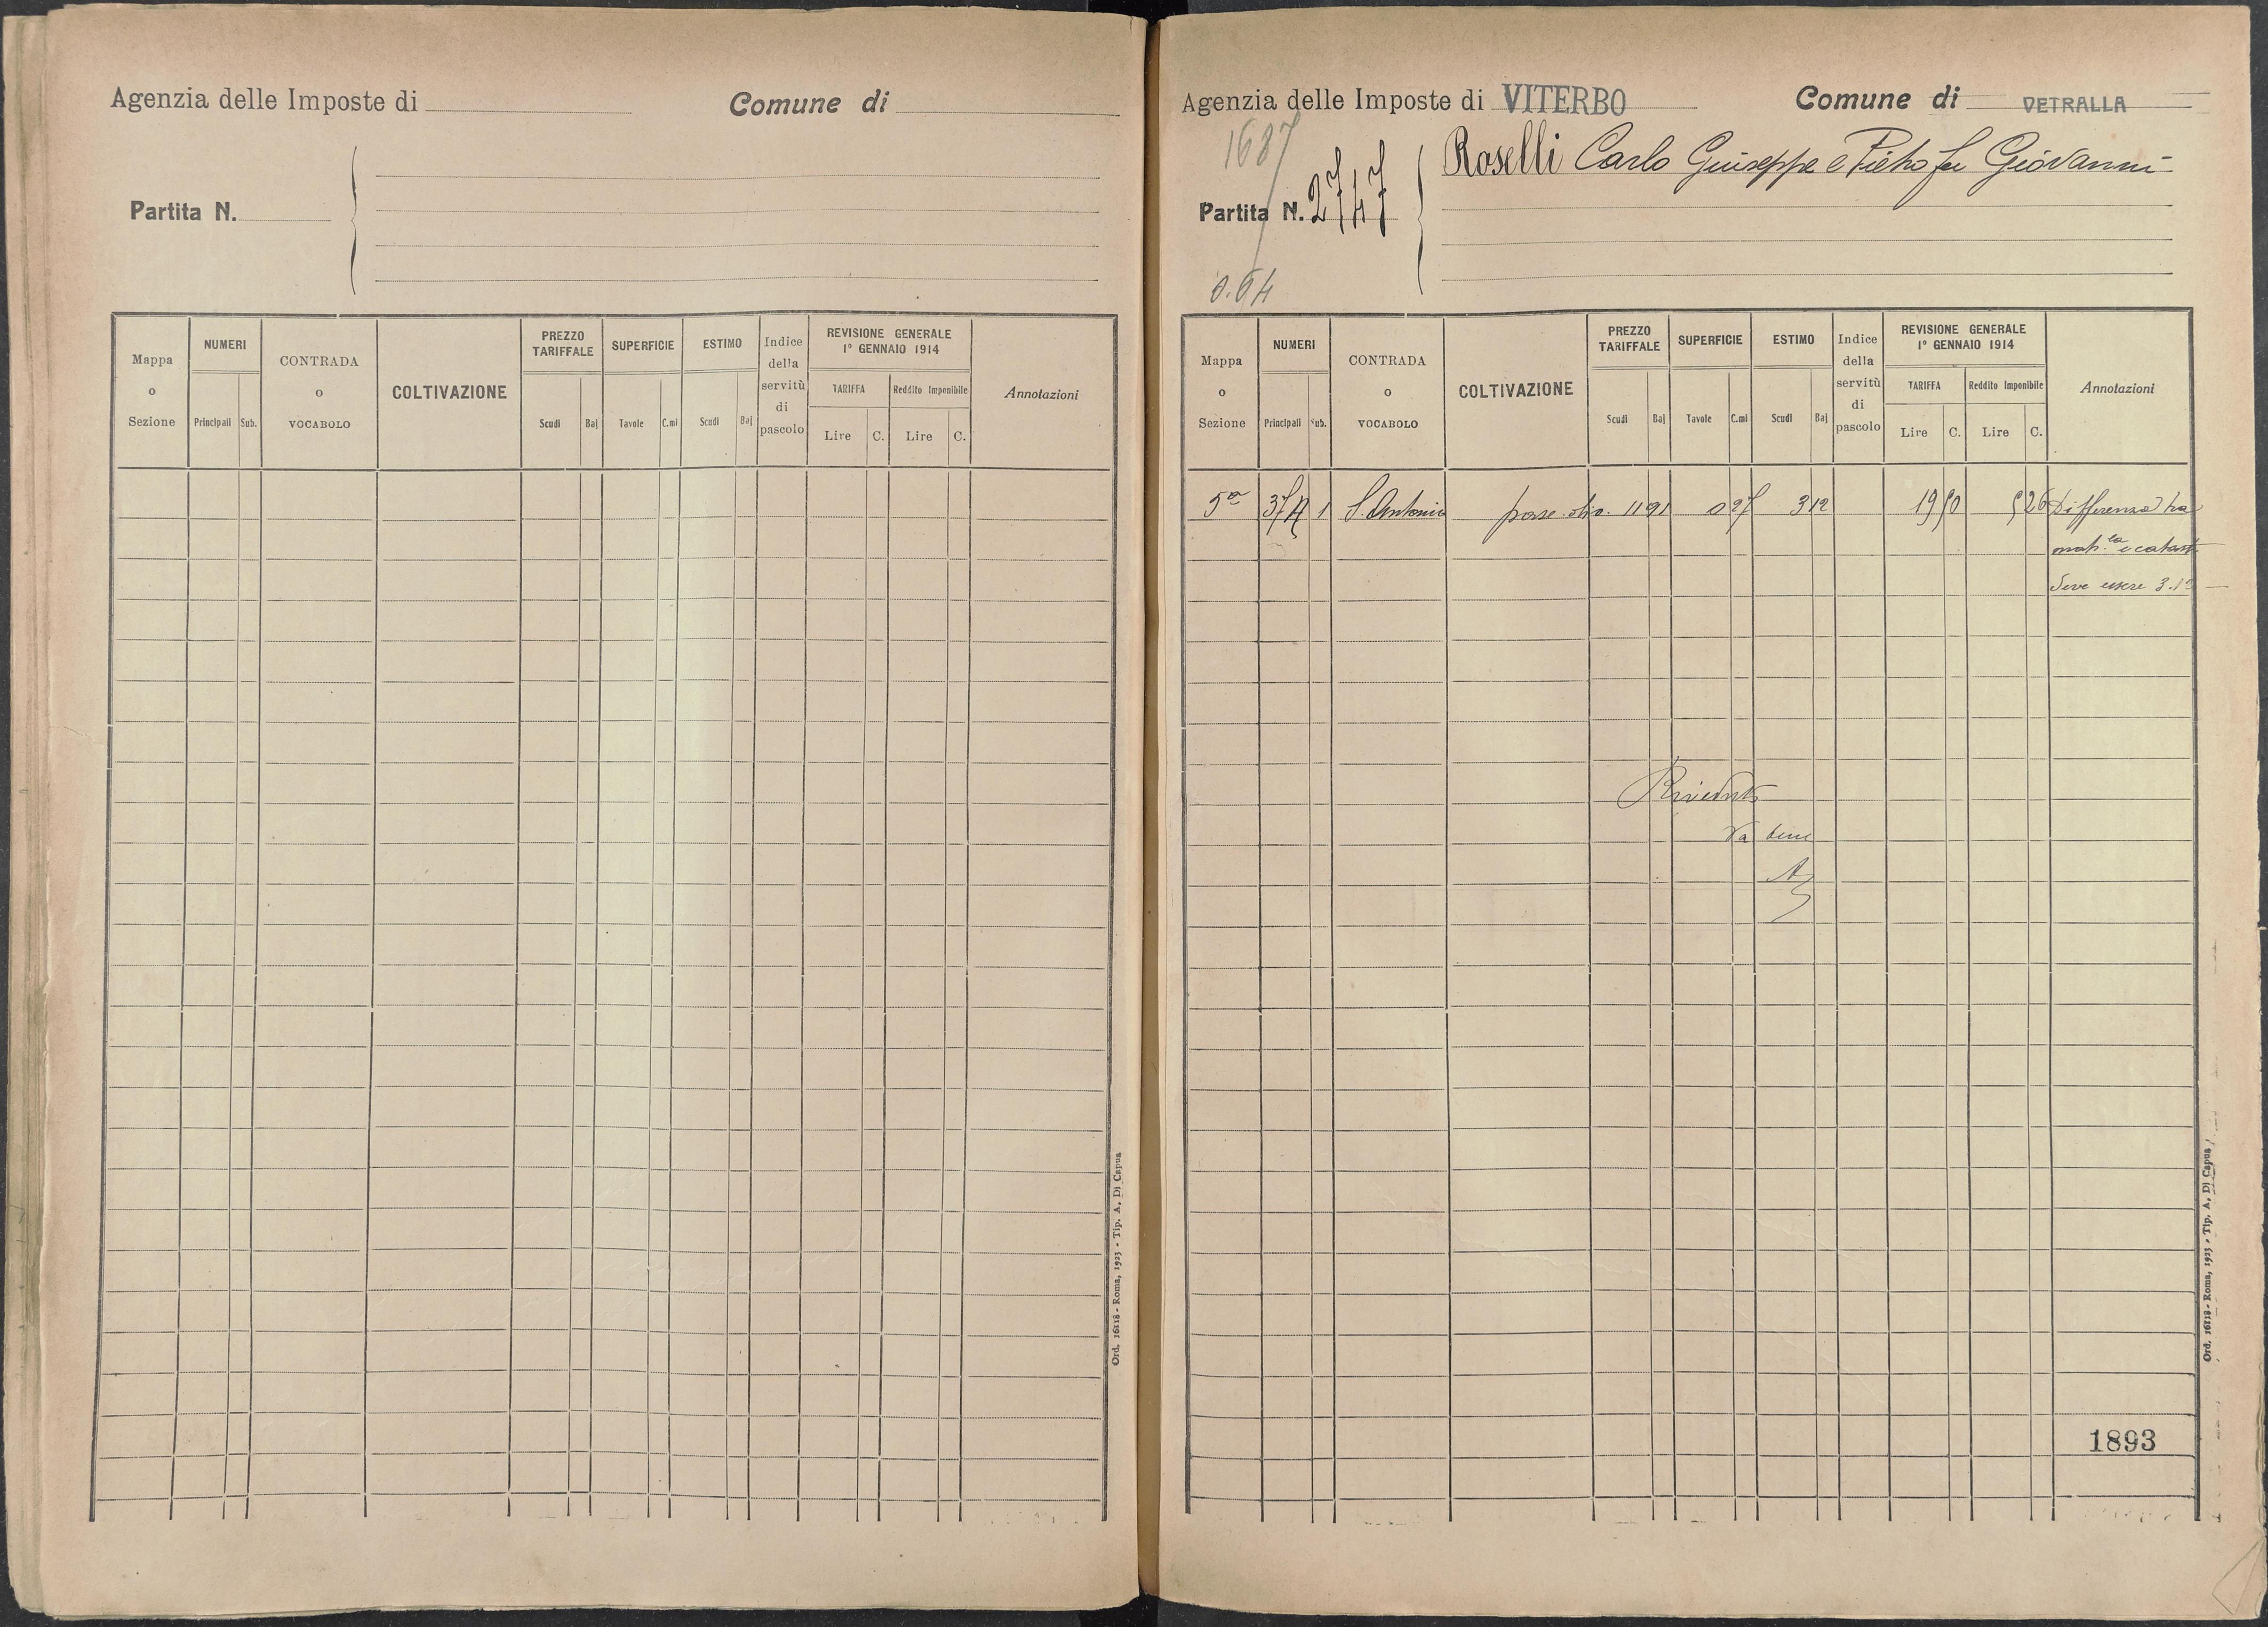 Agenzia delle Imposte di
Comune di
Partita N.
Mappa o Sezione
NUMERI
Principali Sub.
CONTRADA o VOCABOLO
COLTIVAZIONE
PREZZO TARIFFALE
Scudi Baj
SUPERFICIE
Tavole C.mi
ESTIMO
Scudi Baj
Indice della servitù di pascolo
REVISIONE GENERALE
1° GENNAIO 1914
TARIFFA
Lire C.
Reddito Imponibile
Lire C.
Annotazioni
Ord. 16118 - Roma, 1923 - Tip. A. Di Capua
Agenzia delle Imposte di VITERBO
Comune di VETRALLA
1687
Roselli Carlo Giuseppe e Pietro fu Giovanni
Partita N. 2747
0.64
Mappa o Sezione
NUMERI
Principali Sub.
CONTRADA o VOCABOLO
COLTIVAZIONE
PREZZO TARIFFALE
Scudi Baj
SUPERFICIE
Tavole C.mi
ESTIMO
Scudi Baj
Indice della servitù di pascolo
REVISIONE GENERALE
1° GENNAIO 1914
TARIFFA
Lire C.
Reddito Imponibile
Lire C.
Annotazioni
5a 1 S. Antonio 11 91 0 27 3 12 19 50 5 26 Differenza tra
mat.la e catasto
deve essere
Riveduto
Va bene
1893
Ord. 16118 - Roma, 1923 - Tip. A. Di Capua